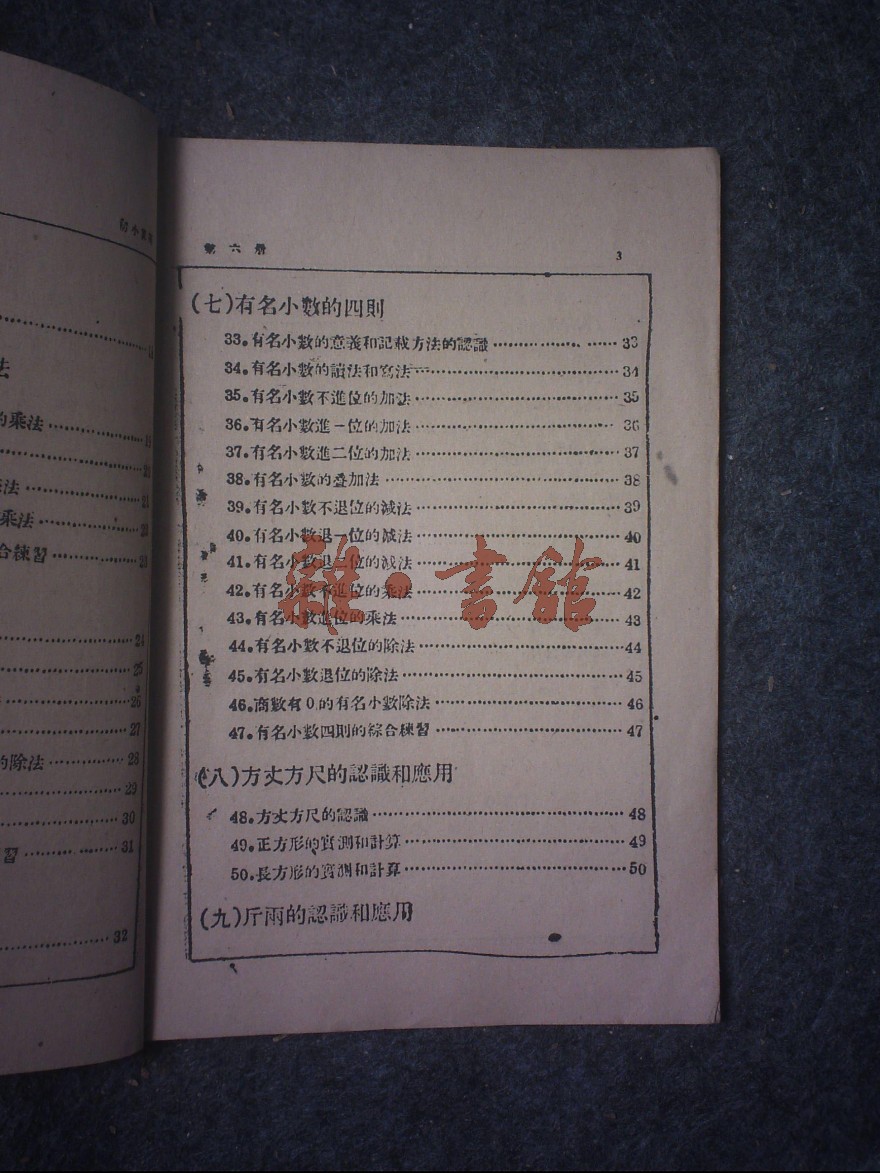 法
的乘法……19
……20
法……21
乘法……22
合練習……23
……24
……25
……26
……27
的除法……28
……29
……30
習……31
……32
第六册 3
(七)有名小數的四則
33.有名小數的意義和記載方法的認識……33
34.有名小數的讀法和寫法……34
35.有名小數不進位的加法……35
36.有名小數進一位的加法……36
37.有名小數進二位的加法……37
38.有名小數的叠加法……38
39.有名小數不退位的減法……39
40.有名小數退一位的減法……40
41.有名小數退二位的減法……41
42.有名小數不進位的乘法……42
43.有名小數進位的乘法……43
44.有名小數不退位的除法……44
45.有名小數退位的除法……45
46.商數有0的有名小數除法……46
47.有名小數四則的綜合練習……47
(八)方丈方尺的認識和應用
48.方丈方尺的認識……48
49.正方形的實測和計算……49
50.長方形的實測和計算……50
(九)斤兩的認識和應用
雜·書館